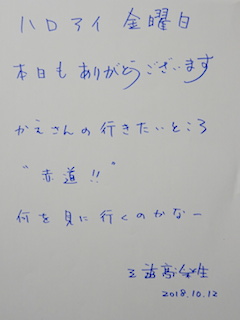 ハロアイ 金曜日
本日もありがとうございます
かえさんの行きたいところ
"赤道!!"
何を見に行くのかなー
2018.10.12